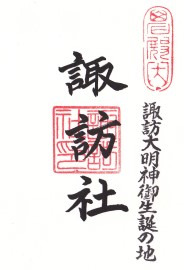 諏訪大明神御生誕の地
諏訪社